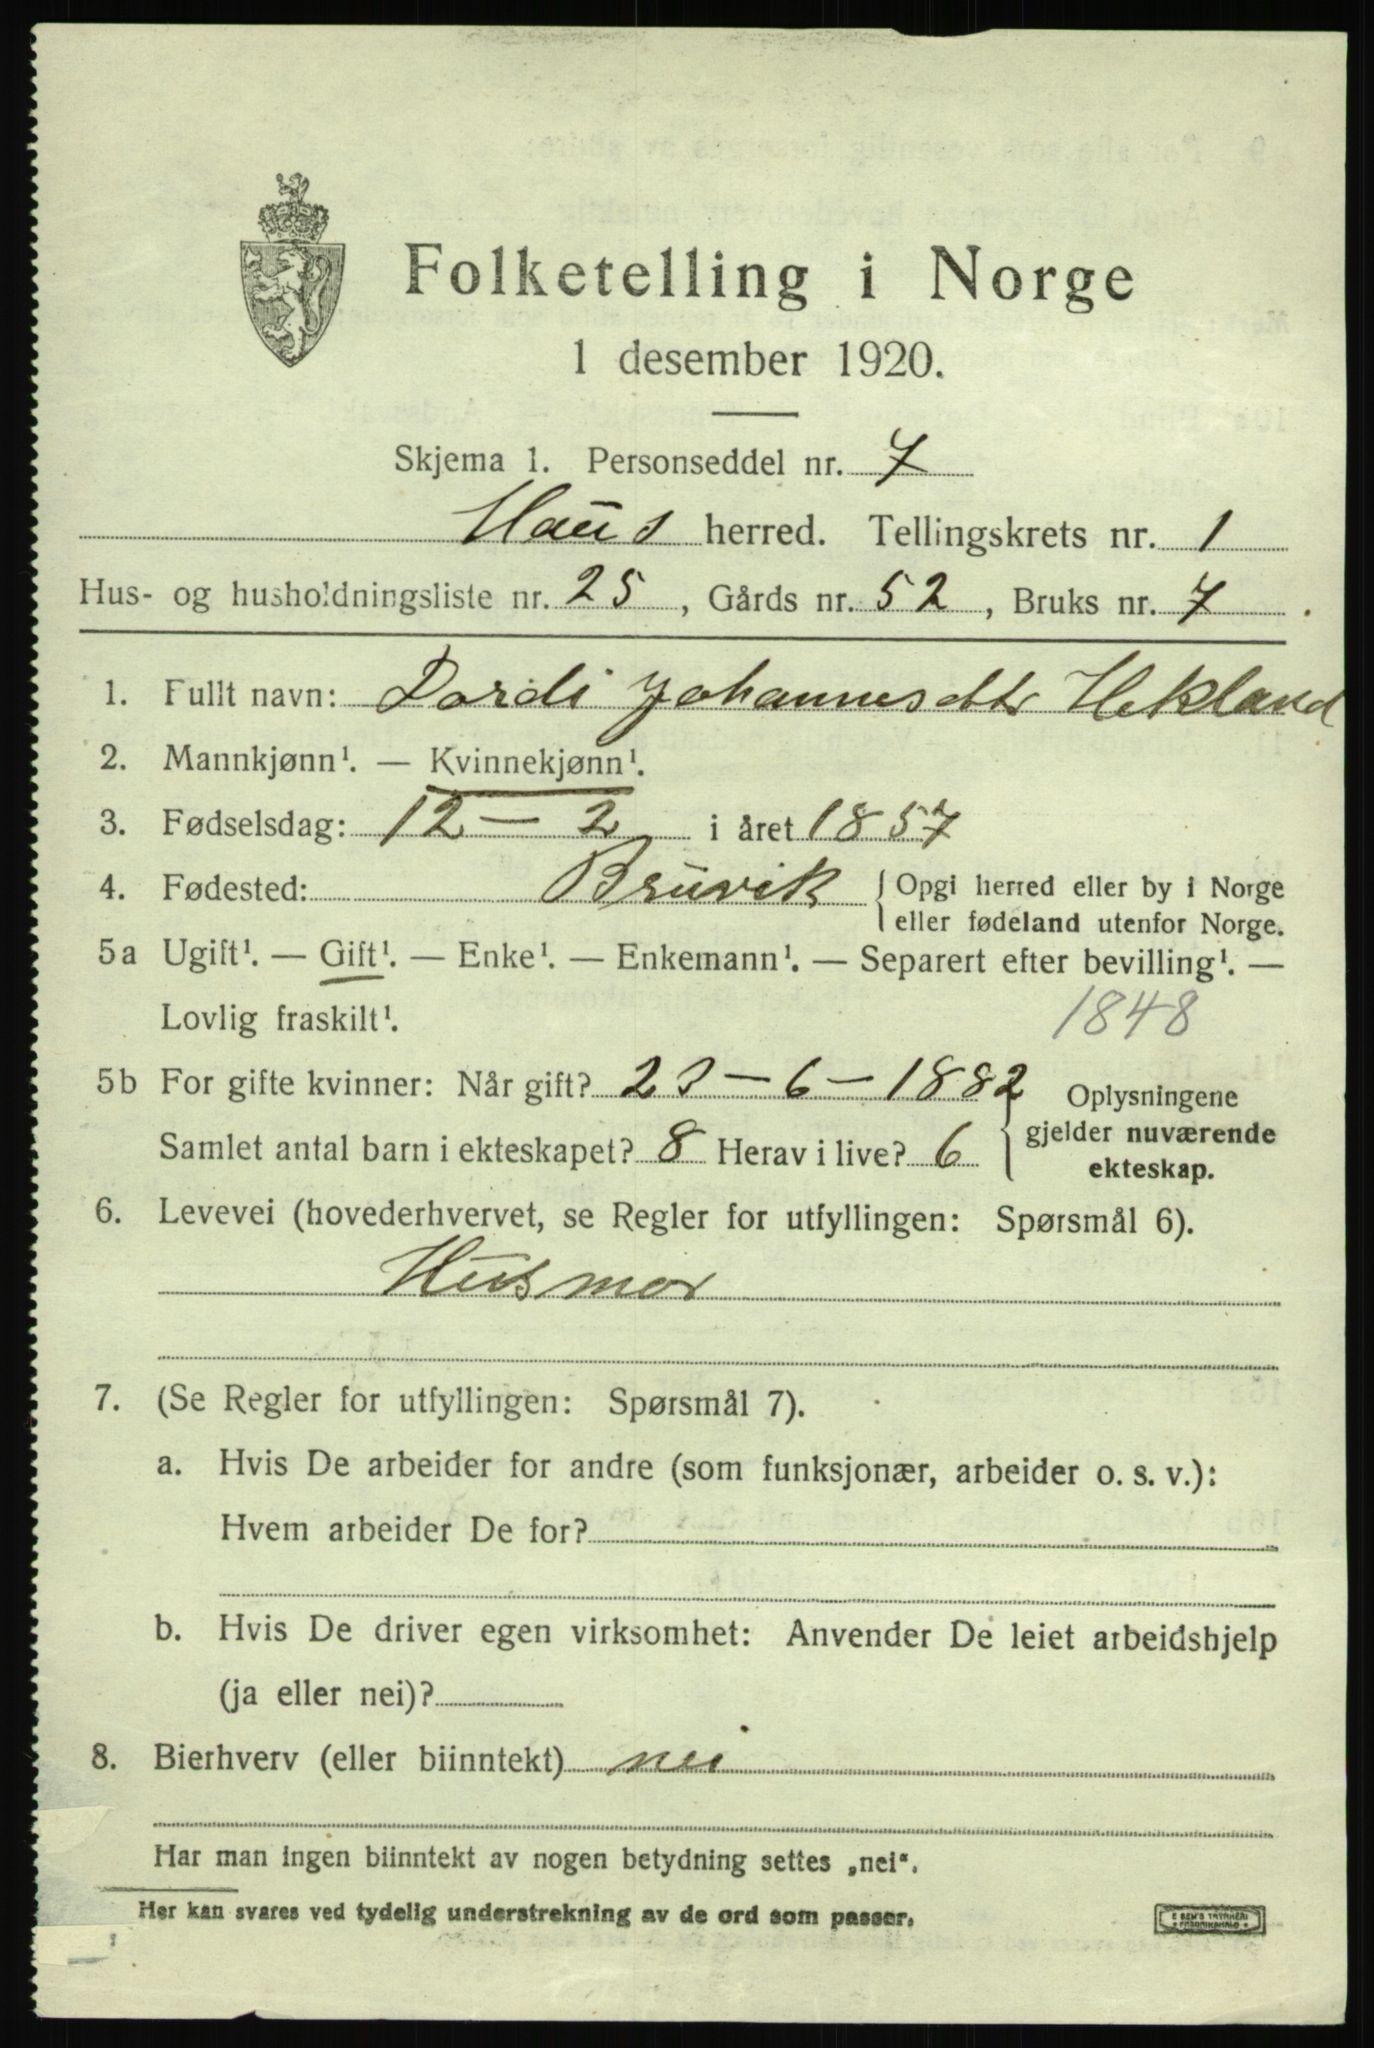 Folketelling i Norge
1 desember 1920.
Skjema 1. Personseddel nr. 7
Haus herred. Tellingskrets nr. 1
Hus- og husholdningsliste nr. 25, Gårds nr. 52, Bruks nr. 7.
1. Fullt navn: Dordi Johannesdtr Hekland
2. Mannkjønn¹. — Kvinnekjønn¹.
3. Fødselsdag: 12 — 2 i året 1857
4. Fødested: Bruvik { Opgi herred eller by i Norge
eller fødeland utenfor Norge.
5a Ugift¹. — Gift¹. — Enke¹. — Enkemann¹. — Separert efter bevilling¹. —
Lovlig fraskilt¹. 1848
5b For gifte kvinner: Når gift? 23 — 6 — 1882 Oplysningene
Samlet antal barn i ekteskapet? 8 Herav i live? 6 gjelder nuværende
ekteskap.
6. Levevei (hovederhvervet, se Regler for utfyllingen: Spørsmål 6).
Husmor
7. (Se Regler for utfyllingen: Spørsmål 7).
a. Hvis De arbeider for andre (som funksjonær, arbeider o. s. v.):
Hvem arbeider De for?
b. Hvis De driver egen virksomhet: Anvender De leiet arbeidshjelp
(ja eller nei)?
8. Bierhverv (eller biinntekt) nei
Har man ingen biinntekt av nogen betydning settes „nei“.
Her kan svares ved tydelig understrekning av de ord som passer.